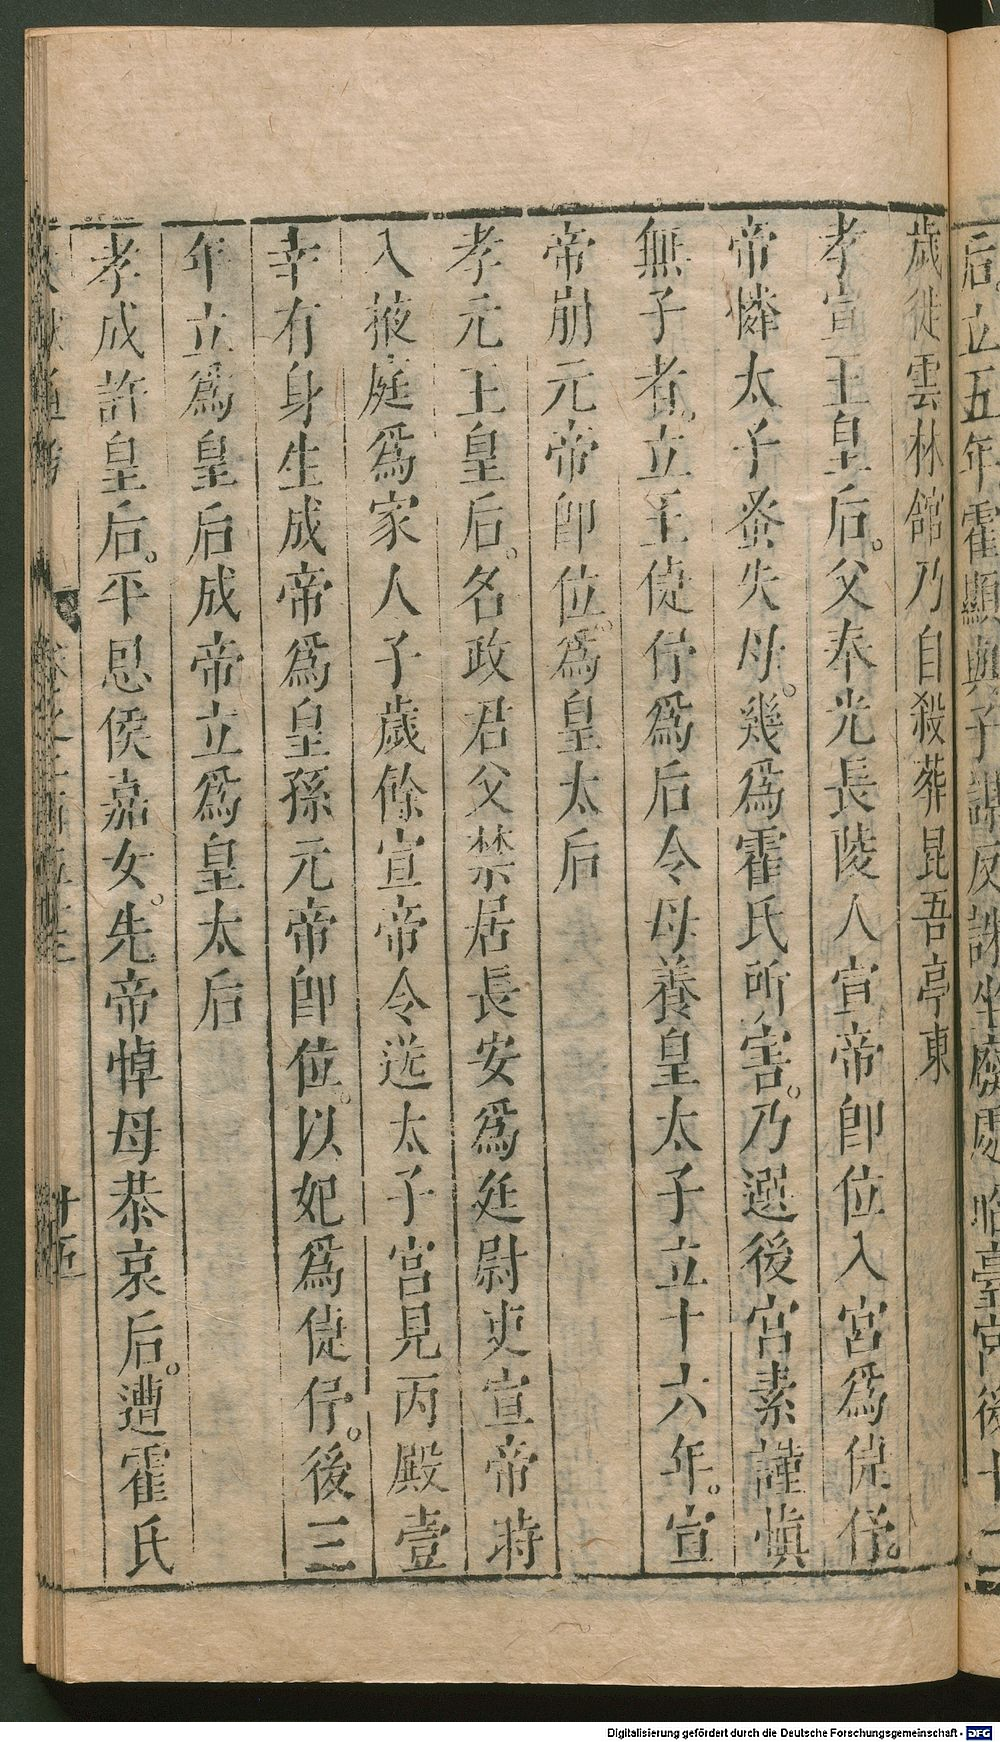 后。立五年霍顯與子謀反誅坐廢處昭臺宮後十二
歲徙雲林館乃自殺葬昆吾亭東
孝宣王皇后。父奉光長陵人宣帝卽位入宮爲倢伃。
帝憐太子蚤失母。幾爲霍氏所害。乃選後宮素謹慎
無子者。立王倢伃爲后令母養皇太子立十六年。宣
帝崩元帝卽位。爲皇太后
孝元王皇后。名政君父禁居長安爲廷尉吏宣帝時
入掖庭爲家人子歲餘宣帝令送太子宮見丙殿壹
幸有身生成帝爲皇孫元帝卽位。以妃爲倢伃。後三
年立爲皇后成帝立爲皇太后
孝成許皇后。平恩侯嘉女。先帝悼母恭哀后。遭霍氏
Digitalisierung gefördert durch die Deutsche Forschungsgemeinschaft - DFG